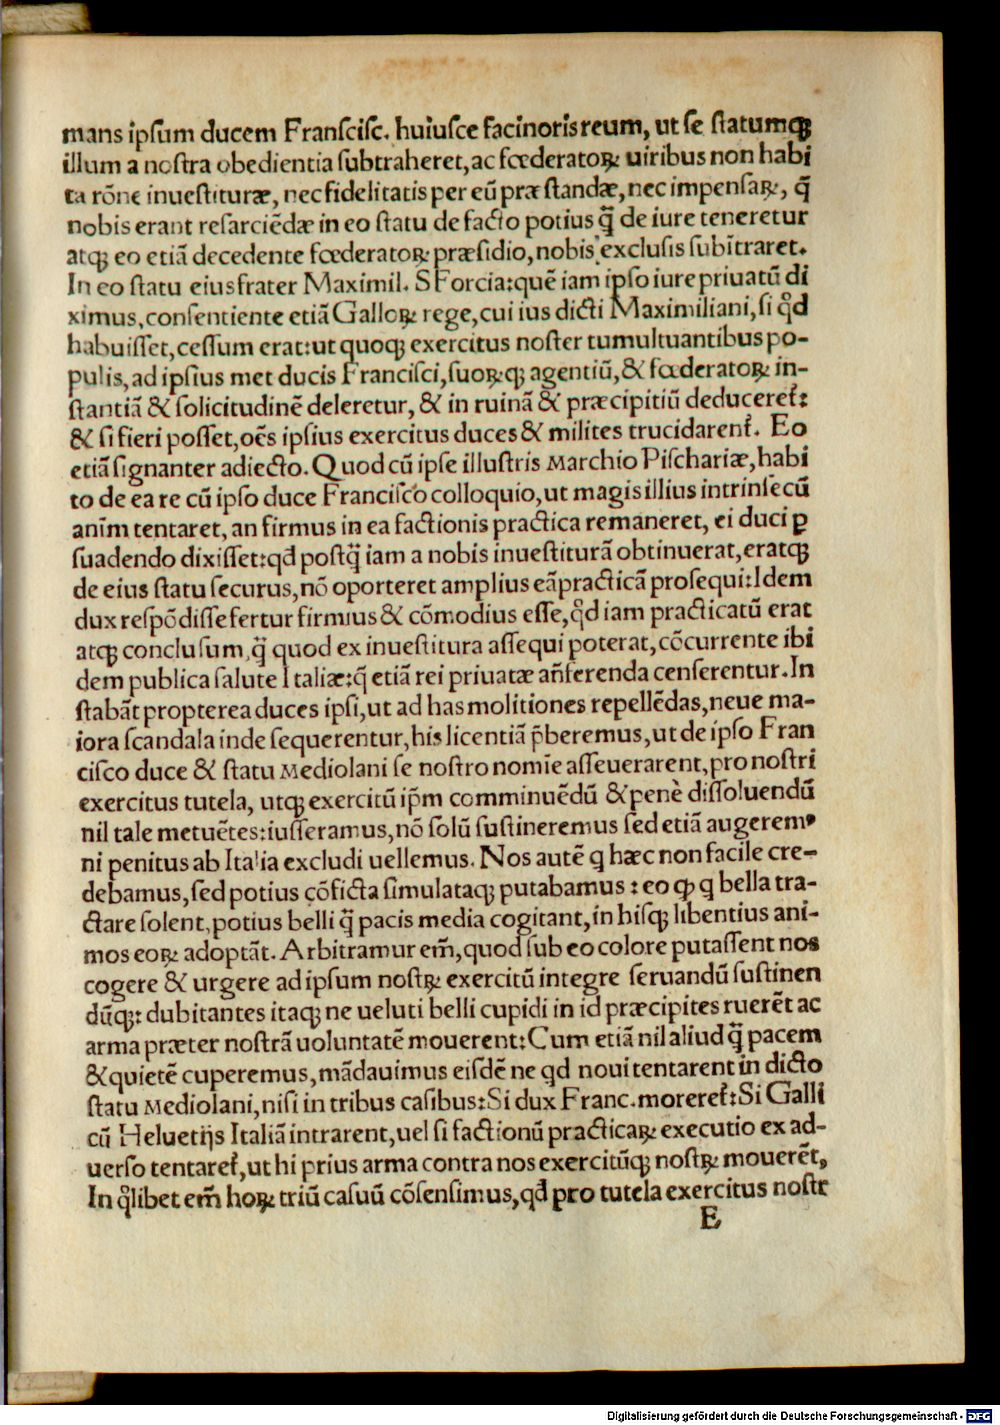 mans ipſum ducem Franſciſc. huiuſce facinoris reum, ut ſe ſtatumqꝫ
illum a noſtra obedientia ſubtraheret, ac fœderatoꝝ uiribus non habi
ta rõne inueſtituræ, nec fidelitatis per eũ præſtandæ, nec impenſaꝝ, q̃
nobis erant reſarciẽdæ in eo ſtatu de facto potius q̃ de iure teneretur
atqꝫ eo etiã decedente fœderatoꝝ præſidio, nobis excluſis ſubĩtraret.
In eo ſtatu eius frater Maximil. SForcia: quẽ iam ipſo iure priuatũ di
ximus, conſentiente etiã Galloꝝ rege, cui ius dicti Maximiliani, ſi qd̓
habuiſſet, ceſſum erat: ut quoqꝫ exercitus noſter tumultuantibus po-
pulis, ad ipſius met ducis Franciſci, ſuoꝝqꝫ agentiũ, & fœderatoꝝ in-
ſtantiã & ſolicitudinẽ deleretur, & in ruinã & præcipitiũ deduceret᷑:
& ſi fieri poſſet, oẽs ipſius exercitus duces & milites trucidarent᷑. Eo
etiã ſignanter adiecto. Quod cũ ipſe illuſtris Marchio Piſchariæ, habi
to de ea re cũ ipſo duce Franciſco colloquio, ut magis illius intrinſecũ
anĩm tentaret, an firmus in ea factionis practica remaneret, ei duci ꝑ
ſuadendo dixiſſet: qd̓ poſtq̃ iam a nobis inueſtiturã obtinuerat, eratqꝫ
de eius ſtatu ſecurus, nõ oporteret amplius eã practicã proſequi: Idem
dux reſpõdiſſe fertur firmius & cõmodius eſſe, qd̓ iam practicatũ erat
atqꝫ concluſum, q̃ quod ex inueſtitura aſſequi poterat, cõcurrente ibi
dem publica ſalute Italiæ: q̃ etiã rei priuatæ añferenda cenſerentur. In
ſtabãt propterea duces ipſi, ut ad has molitiones repellẽdas, neue ma-
iora ſcandala inde ſequerentur, his licentiã p̃beremus, ut de ipſo Fran
ciſco duce & ſtatu Mediolani ſe noſtro nomĩe aſſeuerarent, pro noſtri
exercitus tutela, utqꝫ exercitũ ip̃m comminuẽdũ & penè diſſoluendũ
nil tale metuẽtes: iuſſeramus, nõ ſolũ ſuſtineremus ſed etiã augeremꝰ
ni penitus ab Italia excludi uellemus. Nos autẽ q hæc non facile cre-
debamus, ſed potius cõficta ſimulataqꝫ putabamus: eo ꝙ q bella tra-
ctare ſolent, potius belli q̃ pacis media cogitant, in hiſqꝫ libentius ani-
mos eoꝝ adoptãt. Arbitramur em̃, quod ſub eo colore putaſſent nos
cogere & urgere ad ipſum noſtꝝ exercitũ integre ſeruandũ ſuſtinen
dũqꝫ: dubitantes itaqꝫ ne ueluti belli cupidi in id præcipites ruerẽt ac
arma præter noſtrã uoluntatẽ mouerent: Cum etiã nil aliud q̃ pacem
& quietẽ cuperemus, mãdauimus eiſdẽ ne qd noui tentarent in dicto
ſtatu Mediolani, niſi in tribus caſibus: Si dux Franc. moreret᷑: Si Galli
cũ Heluetijs Italiã intrarent, uel ſi factionũ practicaꝝ executio ex ad-
uerſo tentaret᷑, ut hi prius arma contra nos exercitũqꝫ noſtꝝ mouerẽt,
In qͥlibet em̃ hoꝝ triũ caſuũ cõſenſimus, qd̓ pro tutela exercitus noſtr
E
Digitalisierung gefördert durch die Deutsche Forschungsgemeinschaft - DFG